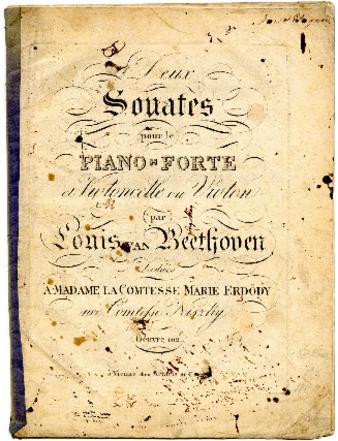 Deux
Sonates
pour le
PIANO-FORTE
et Violoncelle ou Violon
par
Louis VAN Beethoven
Dediées
A MADAME LA COMTESSE MARIE ERDÖDY
née Comtesse Niszky
Oeuvre 102
à Vienne chez Artaria et